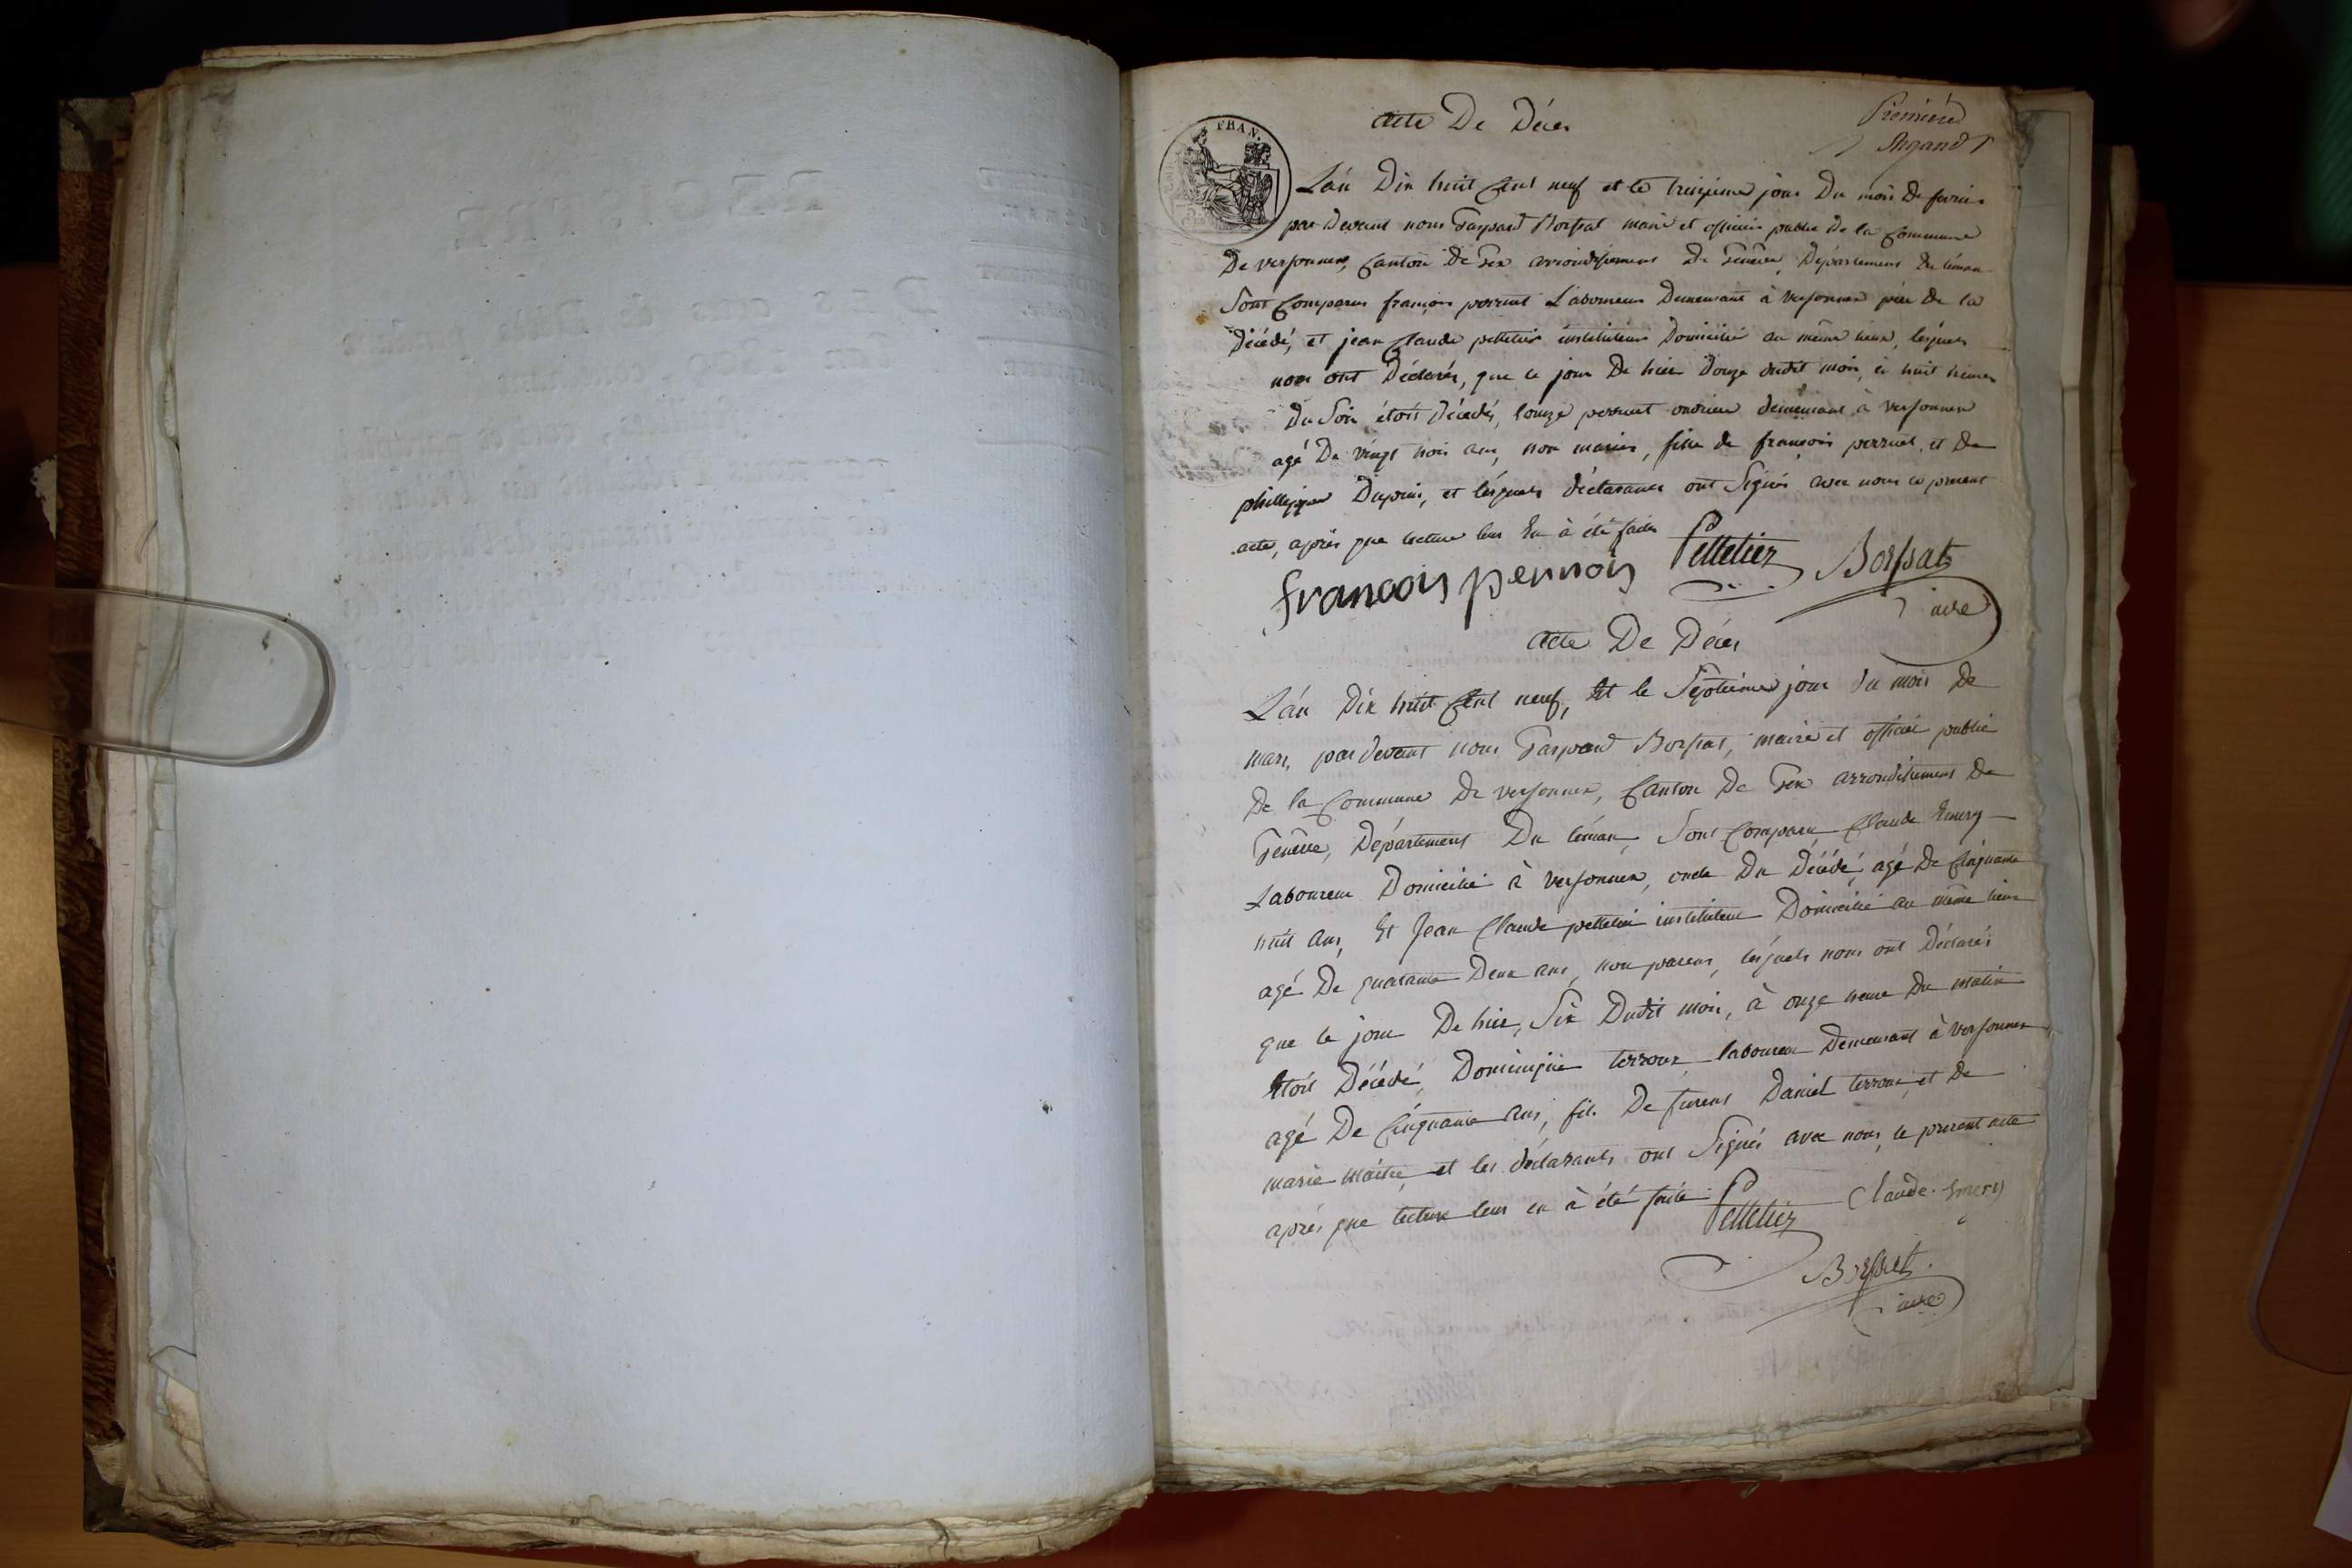 FRAN.
acte De Décés
Premiére
Argand
L'án Dix huit Cent neuf et le treizieme jour Du mois De fevrier
par devant nous Gaspard Borssat maire et officier public De la Commune
De versonnex, Canton De Gex arrondissement De Genêve, Département du léman
Sont Comparus françois perruet Laboureur Demeurant à versonnex pére de la
décédé, et jean Claude pelletier instituteur Domicilié au même lieux, lésquels
nous ont Déclarés, que le jour De hier Douze dudit mois, à huit heures
Du Soir étoit décedés, louize perruet ouvriere demeurant à versonnex
agé De vingt trois ans, non mariés, fille de françois perruet, et de
phillippine Dupuis, et lésquels déclarants ont Signés avec nous le present
acte, aprés que lecture leur En à été faite
francois perruois
Pelletier
Borssat
mire
acte De Décés
L'án Dix huit Cent neuf, Et le Séptieme jour du mois De
mars, par devant nous Gaspard Borssat, maire et officié public
De la Commune De versonnex, Canton De Gex arrondissement De
Genêve, Département Du léman, Sont Comparu Claude Emery
Laboureur Domicilié à versonnex, oncle Du Décédé, agé De Cinquante
huit ans, Et Jean Claude pelletier instituteur Domicilié au même lieux
agé De quarante Deux ans, non parens, lésquels nous ont Déclarés
que le jour De hier, Six Dudit mois, à onze heure Du matin
Etoit Décédé, Dominique terroux laboureur Demeurant à versonnex
agé De Cinquante ans, fils De furent Daniel terroux, et De
marie maitre, et les déclarants ont Signés avec nous, le present acte
aprés que lecture leur en à été faite
Pelletier
Claude Emery
Borssat
mire